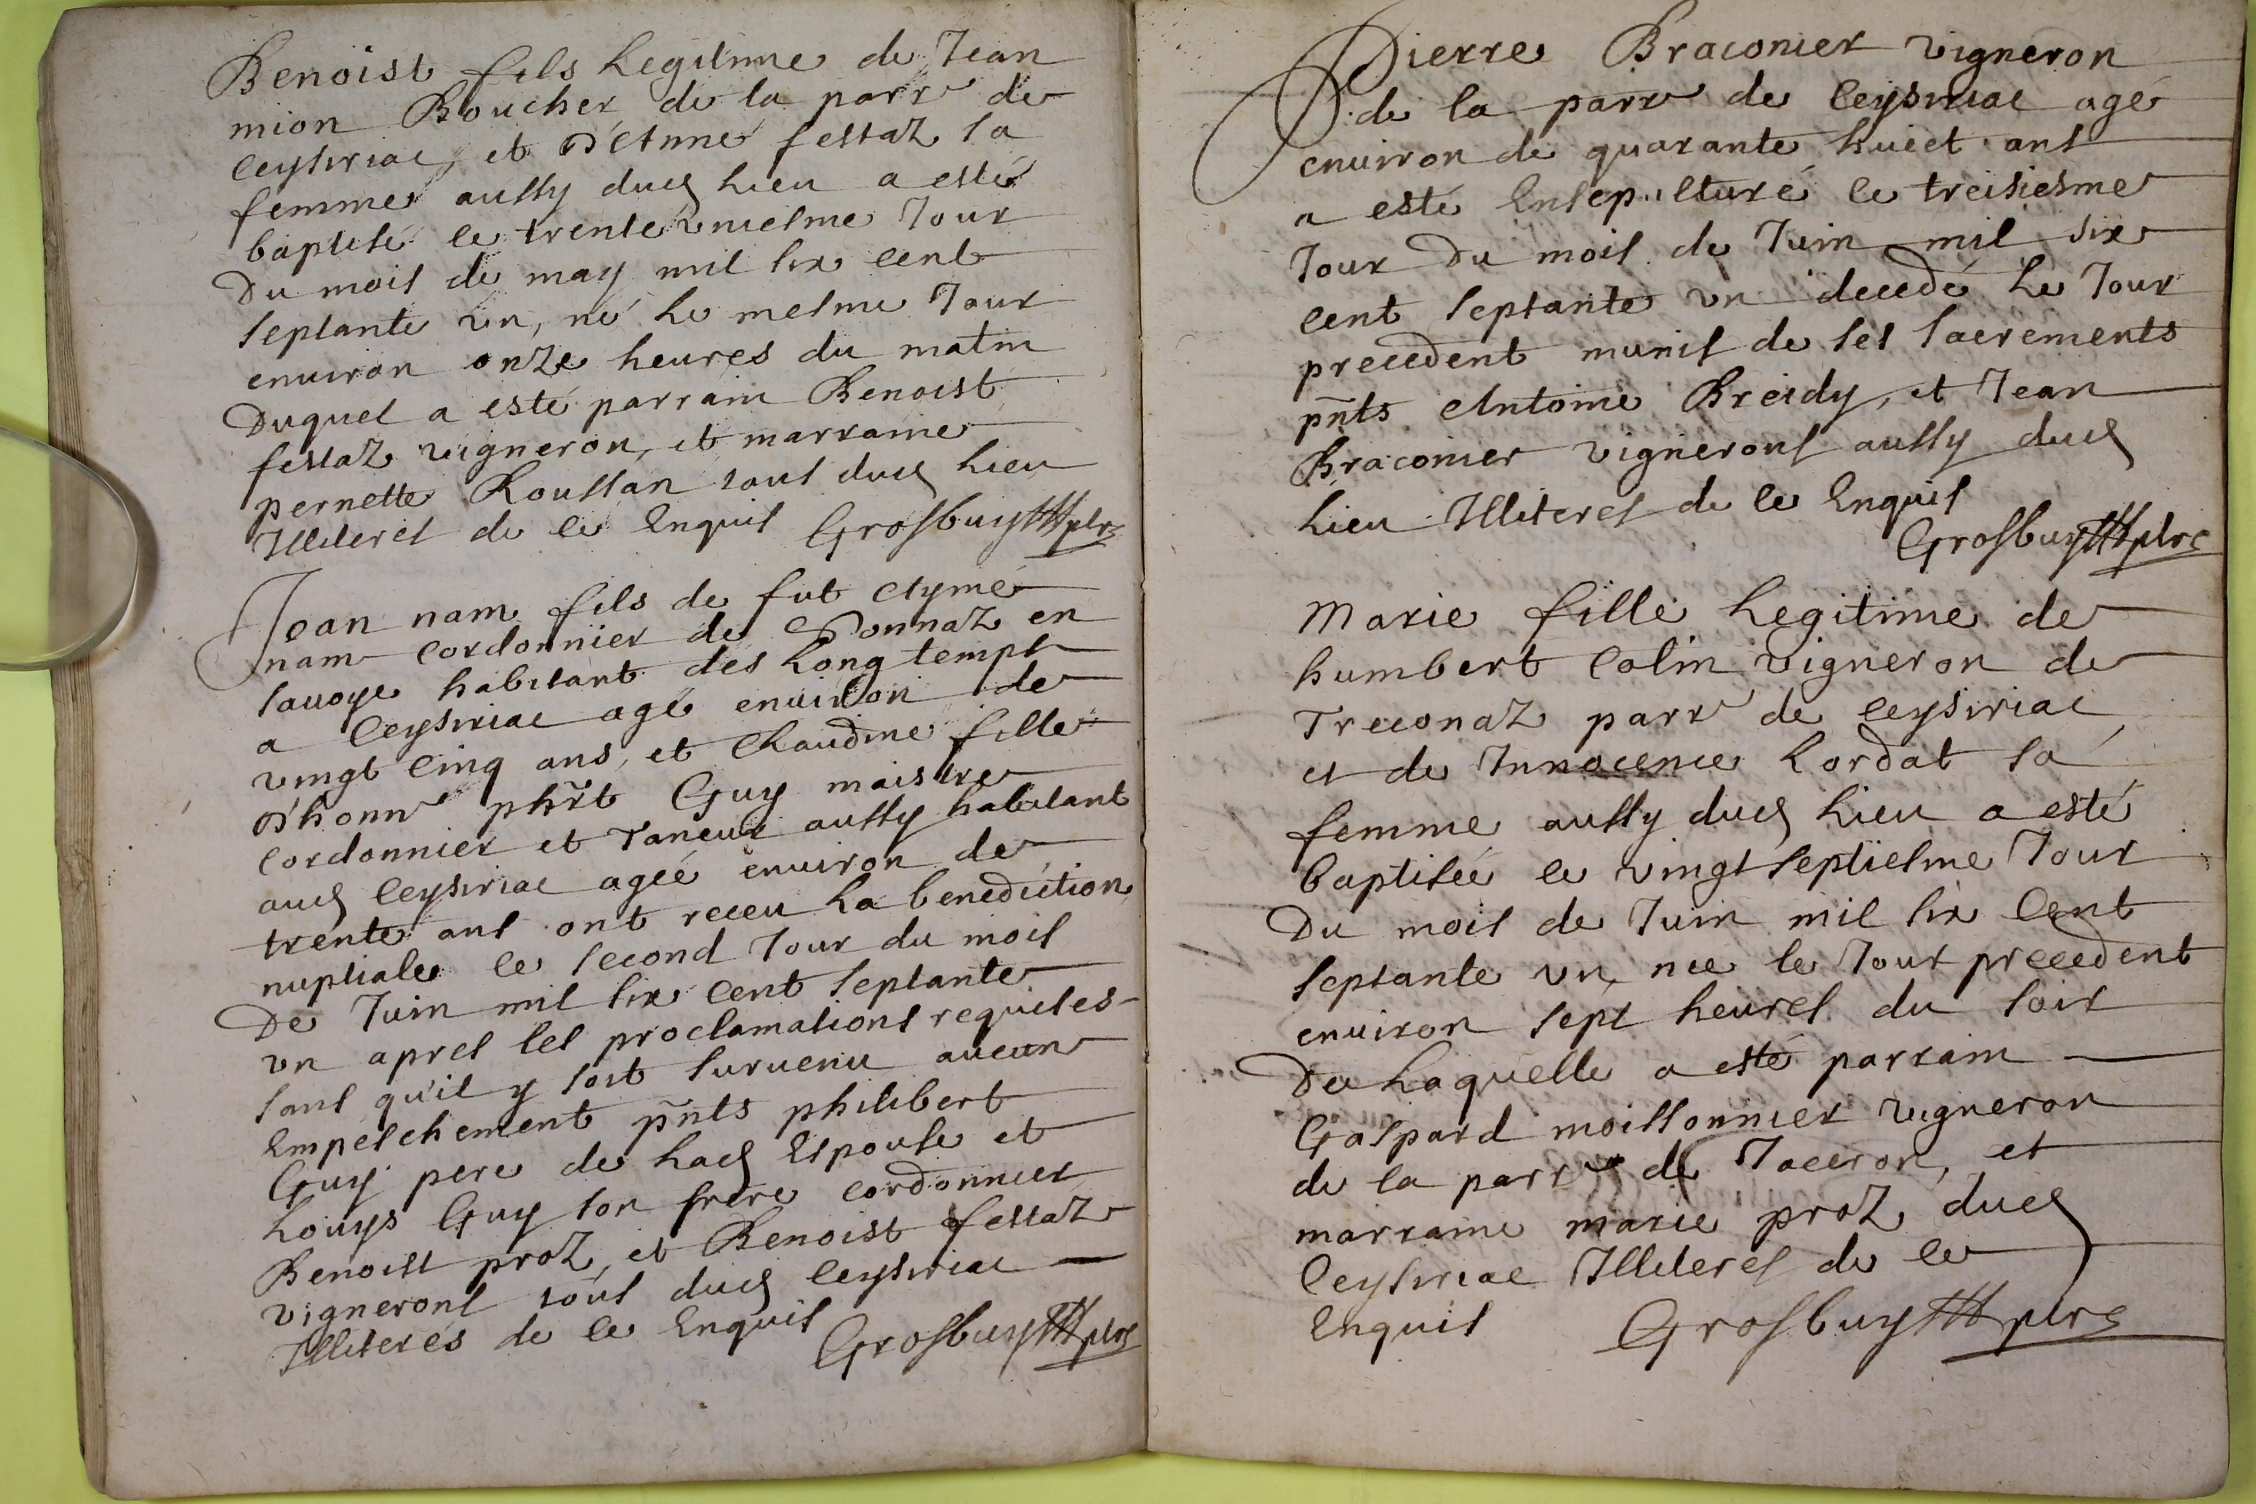 Benoist fils legitime de Jean
mion Boucher de la parre de
Ceysiriac, et D'Anne festaz sa
femme aussy dud lieu a esté
baptisé le trente uniesme Jour
Du mois de may mil six cent
septante un, né le mesme Jour
environ onze heures du matin
Duquel a esté parrain Benoist
festaz vigneron, et marraine
pernette Roussan tous dud lieu
Illiterés de ce Enquis Grosbuy ptre
Jean nam fils de fut Aymé
nam cordonnier de Donnaz en
savoye habitant des long temps
a Ceysiriac agé environ de
vingt cinq ans, et Claudine fille
D'honne phrt Guy maistre
cordonnier et Taneur aussy habitant
aud Ceysiriac agée environ de
trente ans ont receu la benediction
nuptiale le second Jour du mois
De Juin mil six cent septante
un apres les proclamations requises
sans qu'il y soit survenu aucun
Empeschement pñts philibert
Guy pere de lad Espouse et
Louys Guy son frere cordonnier
Benoist proz, et Benoist festaz
vignerons tous dud Ceysiriac
Illiterés de ce Enquis Grosbuy ptre
Pierre Braconier vigneron
de la parre de Ceysiriac agé
environ de quarante huict ans
a esté Ensepulturé le treisiesme
Jour Du mois de Juin mil six
cent septante un decedé le Jour
precedent munis de ses sacrements
pñts Antoine Breidy, et Jean
Braconier vignerons aussy dud
lieu Illiterés de ce Enquis
Grosbuy ptre
Marie fille legitime de
humbert Colin vigneron de
Treconaz parre de Ceysiriac
et de Innocence Lordat sa
femme aussy dud lieu a esté
baptisée le vingt septiesme Jour
Du mois de Juin mil six Cent
septante un, nee le Jour precedent
environ sept heures du soir
De Laquelle a esté parrain
Gaspard moissonnier vigneron
de la parre de Jaceron, et
marraine marie proz dud
Ceysiriac Illiterés de ce
Enquis Grosbuy ptre